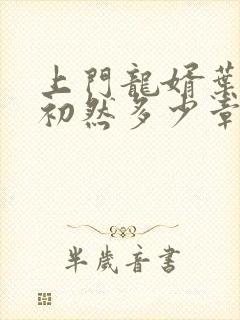 上門龍婿葉
初然多少章
半歲音書